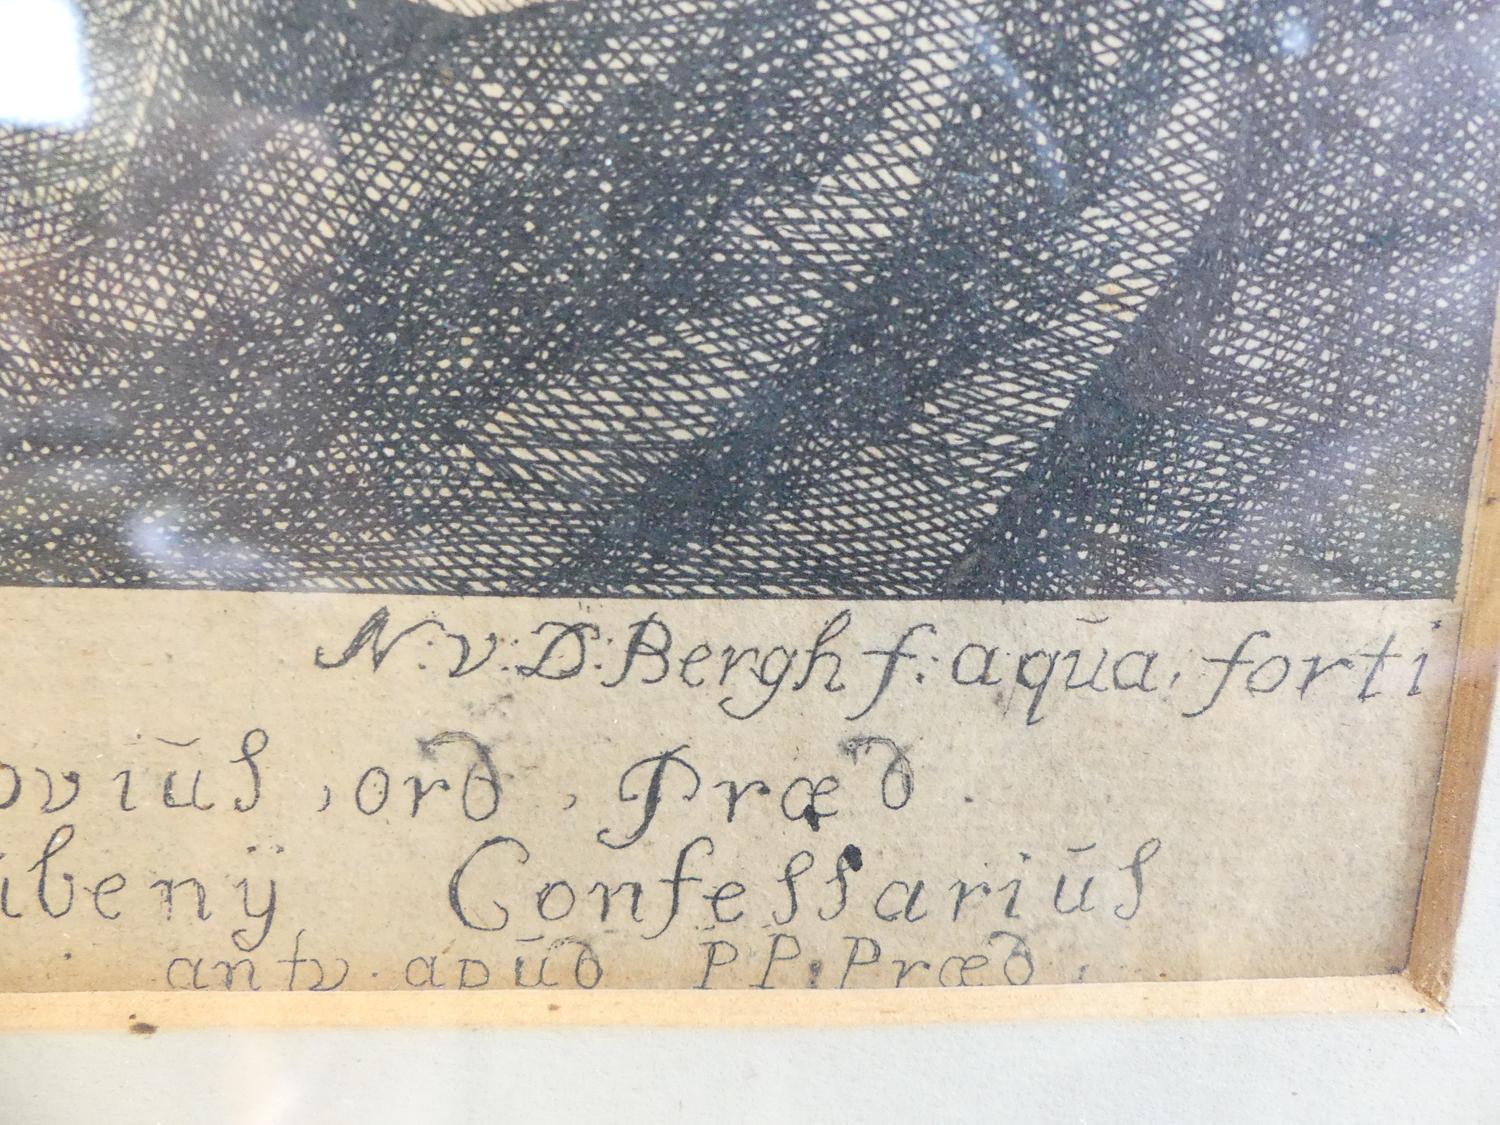 N: v: D: Bergh f: aqūa, forti
oviūs, ord, Præd.
ibenÿ Confessariūs
antv. apūd PP. Præd.